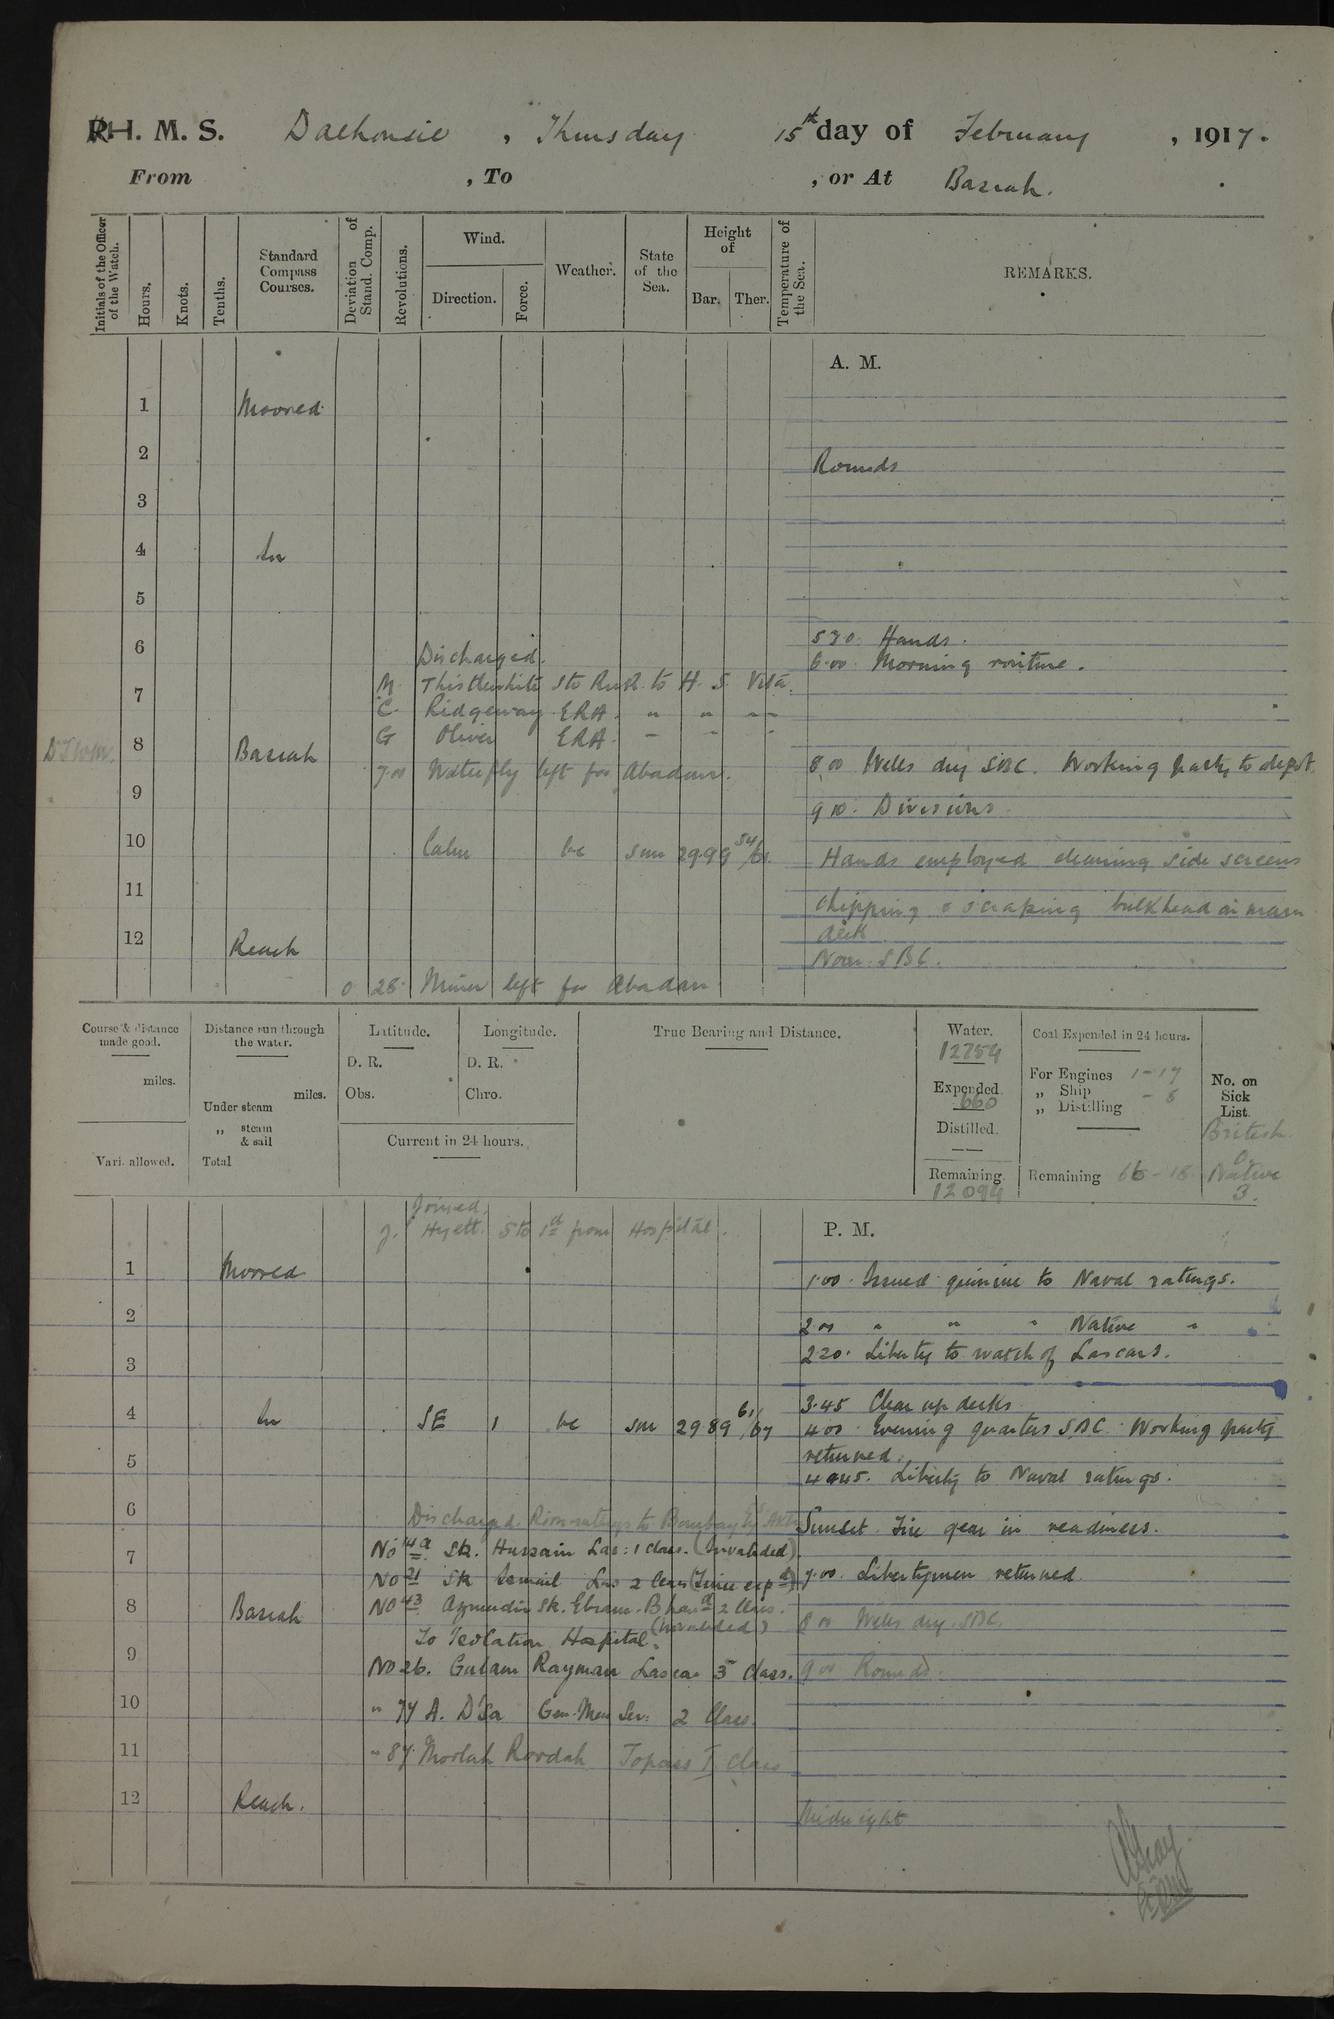 R.H. M. S. Dalhousie, Thursday 15th day of February, 1917.
From , To , or At Basrah.
Initials of the Officer of the Watch.
Hours.
Knots.
Tenths.
Standard Compass Courses.
Deviation of Stand. Comp.
Revolutions.
Wind.
Direction.
Force.
Weather.
State of the Sea.
Height of
Bar. Ther.
Temperature of the Sea.
REMARKS.
A. M.
1 Moored
2 Rounds
3
4 In
5
5 30 Hands.
6 Discharged. 6.00 Morning routine.
M. Thistlewhite Sto RNR to H. S. Vita.
7
C. Ridgeway ERA. " " " "
G Oliver ERA. " " "
8 Basrah 8.00 Wells dry SBC. Working party to depot
7.00 Waterfly left for Abadan.
9 9 10. Divisions
10 Calm bc sm 29.99 54/61 Hands employed cleaning side screens
11 chipping & scraping bulkhead on main
12 Reach deck
Noon. SBC.
0 28 Miner left for Abadan
Course & distance made good.
miles.
Vari. allowed.
Distance run through the water.
miles.
Under steam
„ steam & sail
Total
Latitude.
D. R.
Obs.
Longitude.
D. R.
Chro.
Current in 24 hours.
True Bearing and Distance.
Water.
12754
Expended.
660
Distilled.
Remaining.
12094
Coal Expended in 24 hours.
For Engines 1-17
„ Ship - 8
„ Distilling
Remaining 66-18
No. on Sick List.
British
0
Native
3.
Joined.
J. Hyett. Sto 1st from Hospital.
P. M.
1 Moored 1.00. Issued quinine to Naval ratings.
2 2 00 " " " Native "
3 2 20. Liberty to watch of Lascars.
3.45 Clear up decks
4 In SE 1 bc sm 29.89 61/67 4.00 Evening quarters SBC. Working party
returned.
5 4.45. Liberty to Naval ratings.
6 Discharged. ratings to Bombay Sunset. Fire gear in readiness.
No 142. Sk. Hussain Las: 1 Class. (Invalided).
7 No 21 Sk Ismail Las 2 Class (Time exp d) 7.00. Libertymen returned.
8 Basrah No 43 Aymudin Sk. Ebram. 2 Class. (Invalided) 8 00 Wells dry. SBC.
To Isolation Hospital.
9 No 26. Gulam Rayman Lascar 3 Class. 9 00 Rounds.
10 " 74 A. D'Sa Gen. Mess Ser: 2 Class.
11 " 87 Moolah Rovdah Topass I Class
12 Reach. Midnight